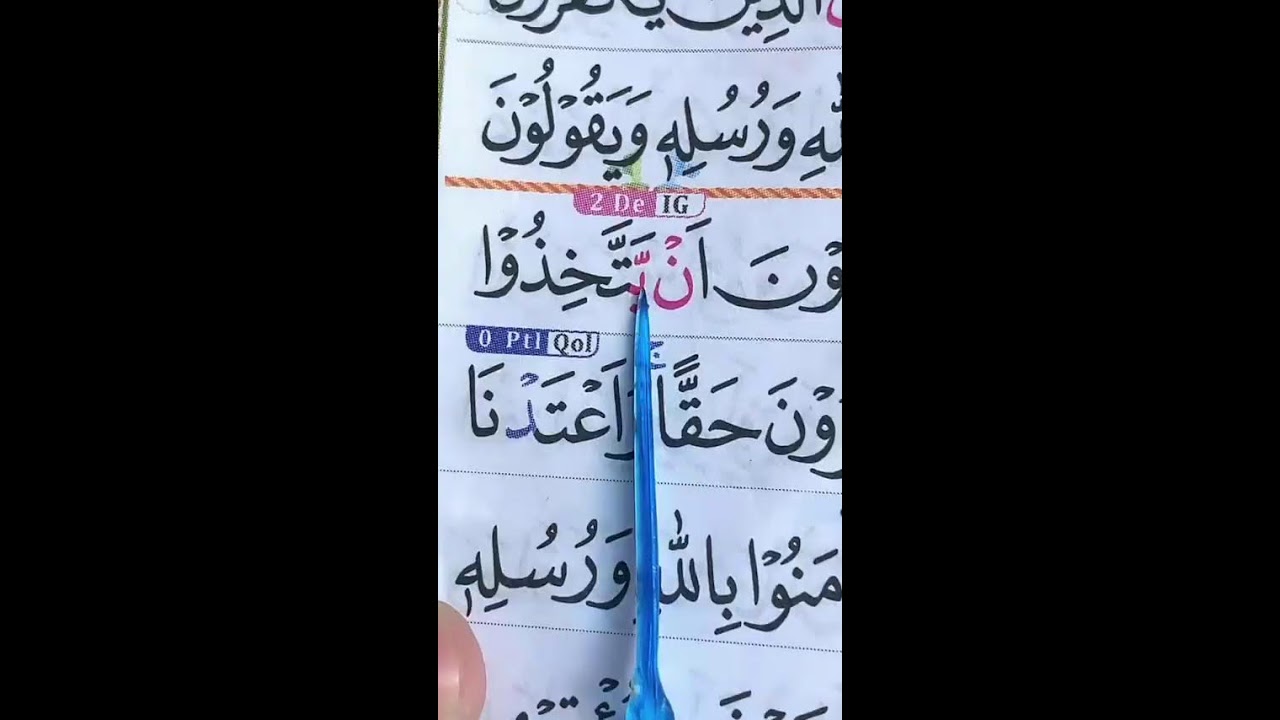 الذين يكفرون
للهِ وَرُسُلِهٖ وَيَقُوْلُوْنَ
2 De IG
وْنَ اَنْ يَّتَّخِذُوْا
0 Ptl Qol
رُوْنَ حَقًّا ۚ وَاَعْتَدْنَا
مَنُوْا بِاللّٰهِ وَرُسُلِهٖ